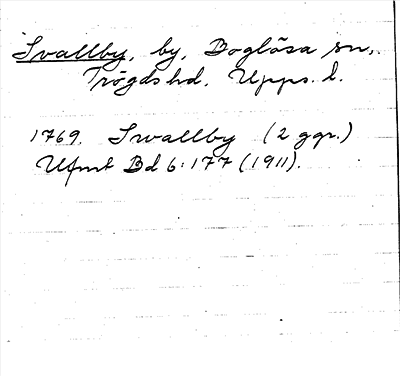 Svallby, by, Boglösa sn,
Trögds hd, Upps. l.
1769. Swallby (2 ggr.)
Ufmt Bd 6:177 (1911).